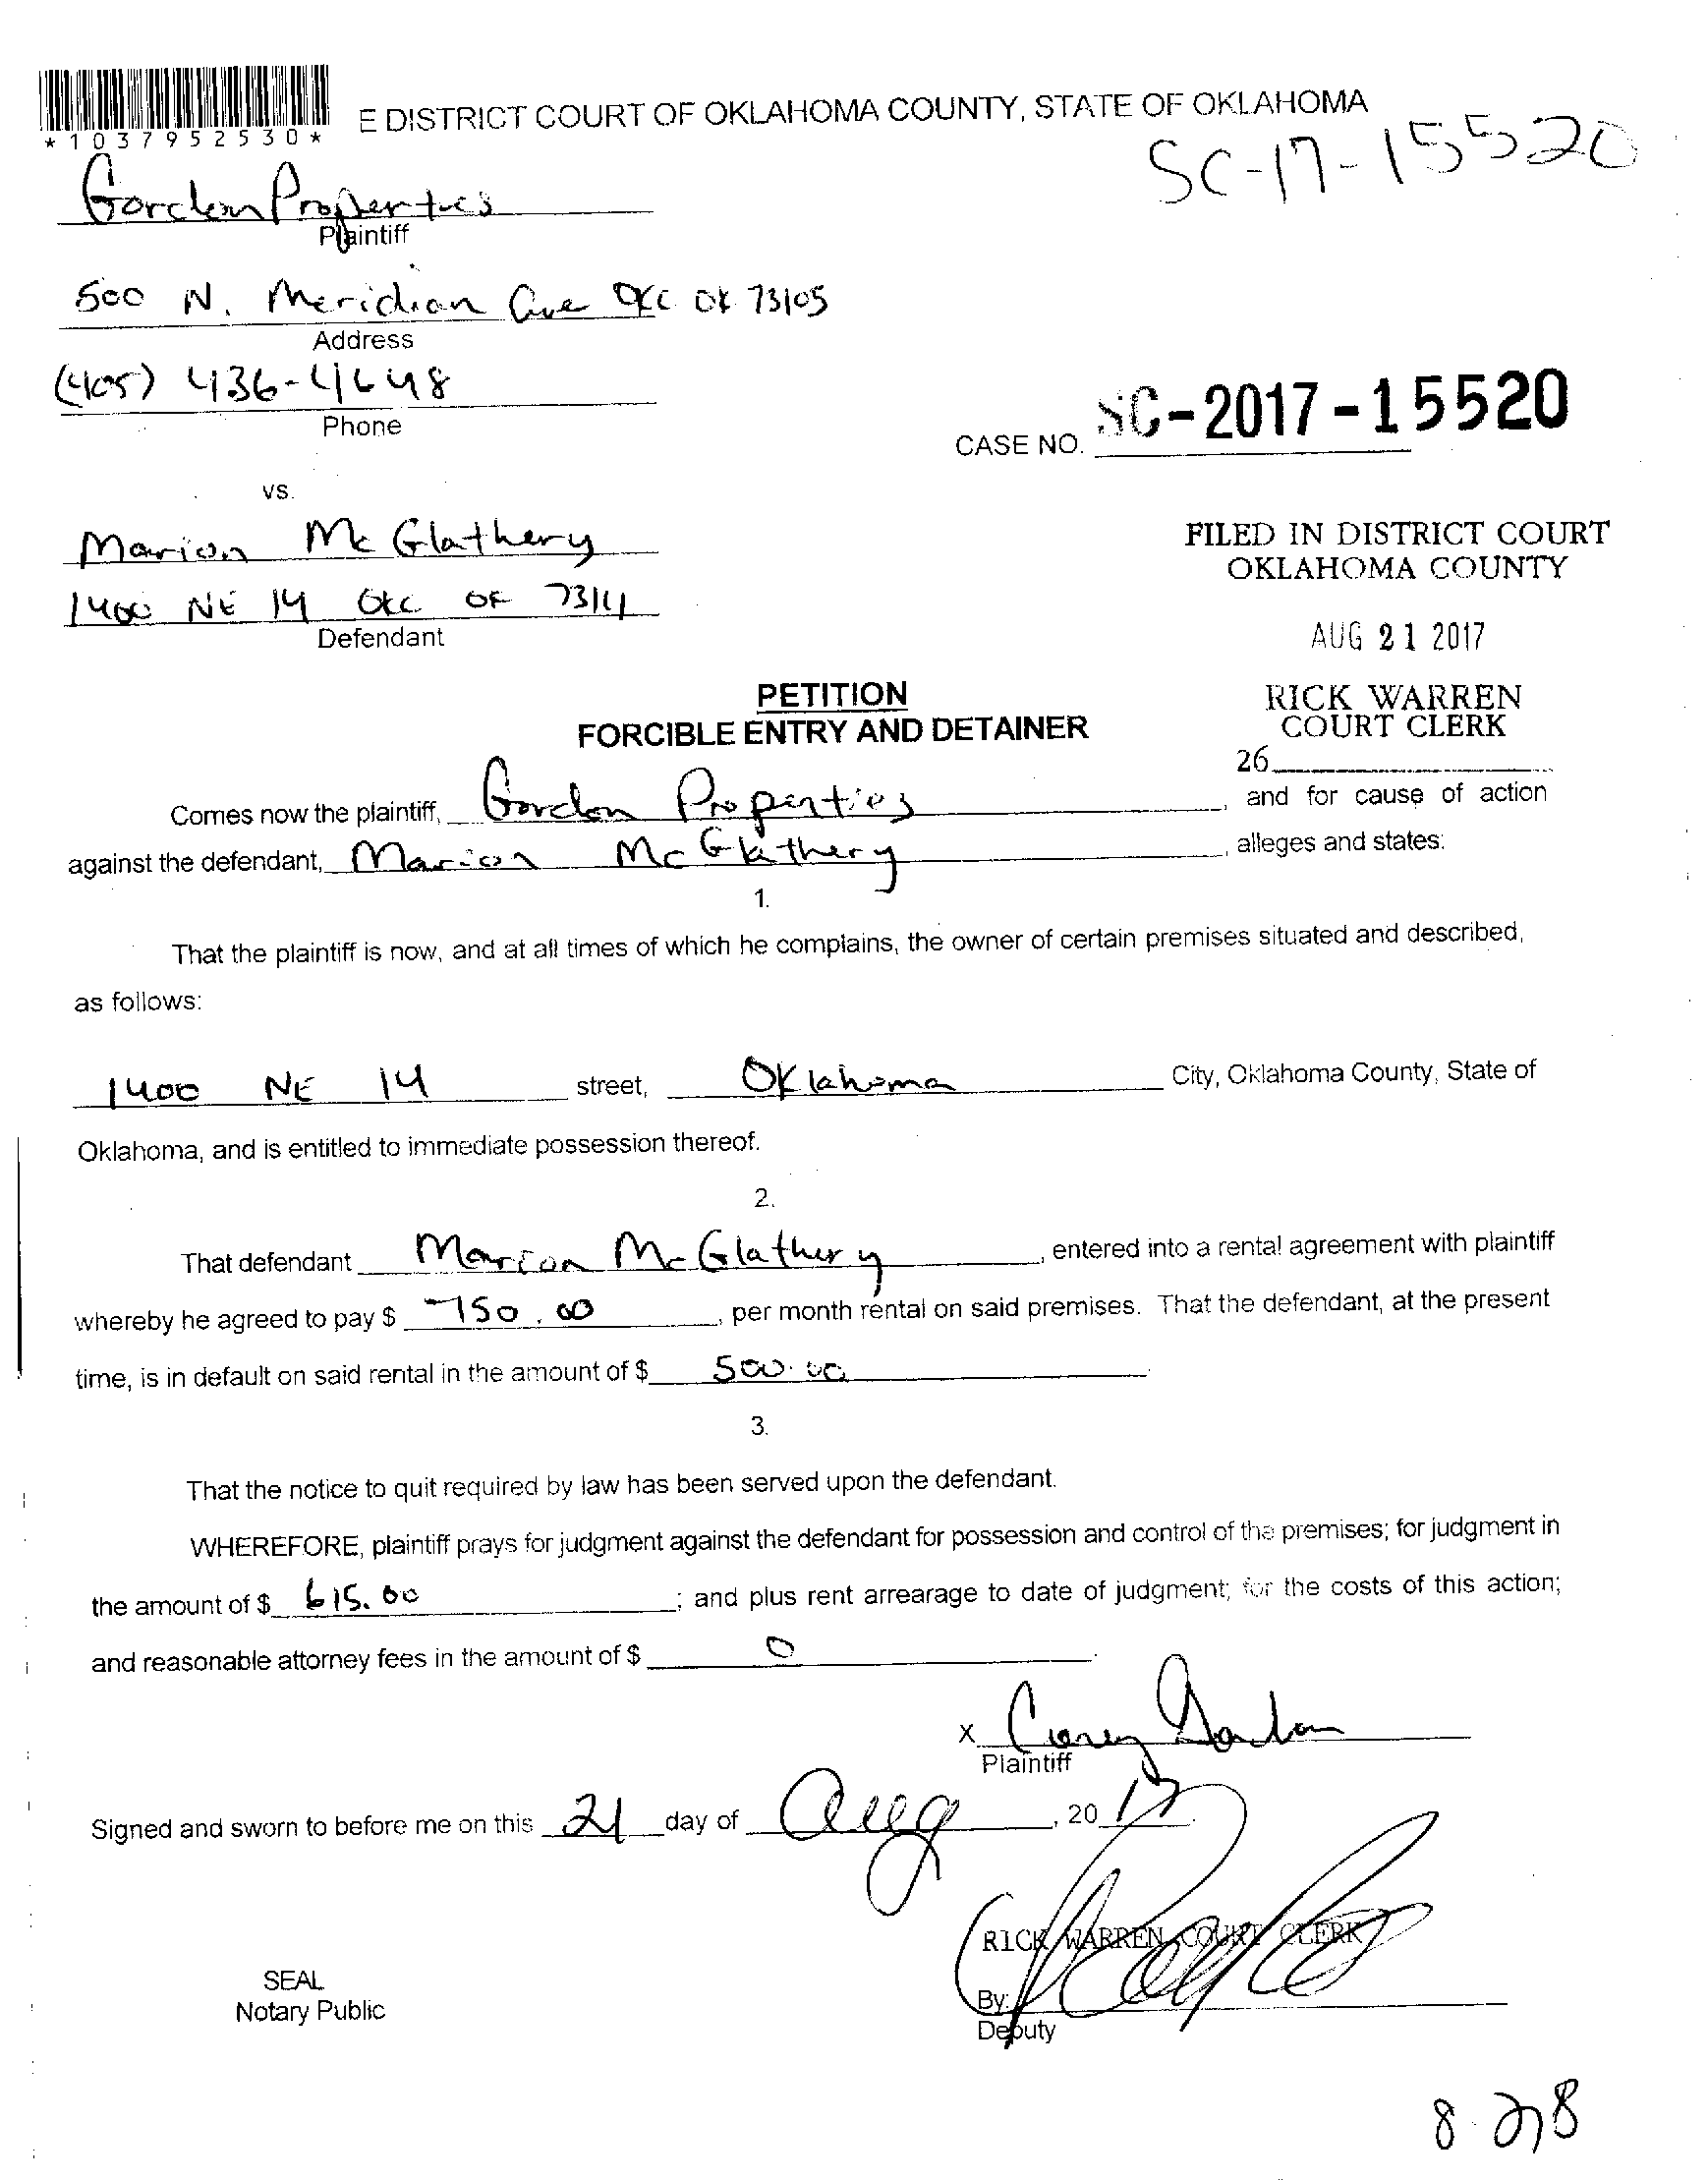 *1037952530*
E DISTRICT COURT OF OKLAHOMA COUNTY, STATE OF OKLAHOMA
SC-17-15520
Gordon Properties
Plaintiff
500 N. Meridian Ave OKC OK 73105
Address
(405) 436-4648
Phone
CASE NO. SC-2017-15520
vs.
Marion McGlathery
1400 NE 14 OKC OK 73111
Defendant
FILED IN DISTRICT COURT
OKLAHOMA COUNTY
AUG 21 2017
RICK WARREN
COURT CLERK
26
PETITION
FORCIBLE ENTRY AND DETAINER
Comes now the plaintiff, Gordon Properties, and for cause of action
against the defendant, Marion McGlathery, alleges and states:
1.
That the plaintiff is now, and at all times of which he complains, the owner of certain premises situated and described,
as follows:
1400 NE 14 street, Oklahoma City, Oklahoma County, State of
Oklahoma, and is entitled to immediate possession thereof.
2.
That defendant Marion McGlathery, entered into a rental agreement with plaintiff
whereby he agreed to pay $ 750.00, per month rental on said premises. That the defendant, at the present
time, is in default on said rental in the amount of $ 500.00
3.
That the notice to quit required by law has been served upon the defendant.
WHEREFORE, plaintiff prays for judgment against the defendant for possession and control of the premises; for judgment in
the amount of $ 615.00; and plus rent arrearage to date of judgment; for the costs of this action;
and reasonable attorney fees in the amount of $ 0
x Corey Gordon
Plaintiff
Signed and sworn to before me on this 21 day of Aug, 2017
RICK WARREN COURT CLERK
By:
Deputy
SEAL
Notary Public